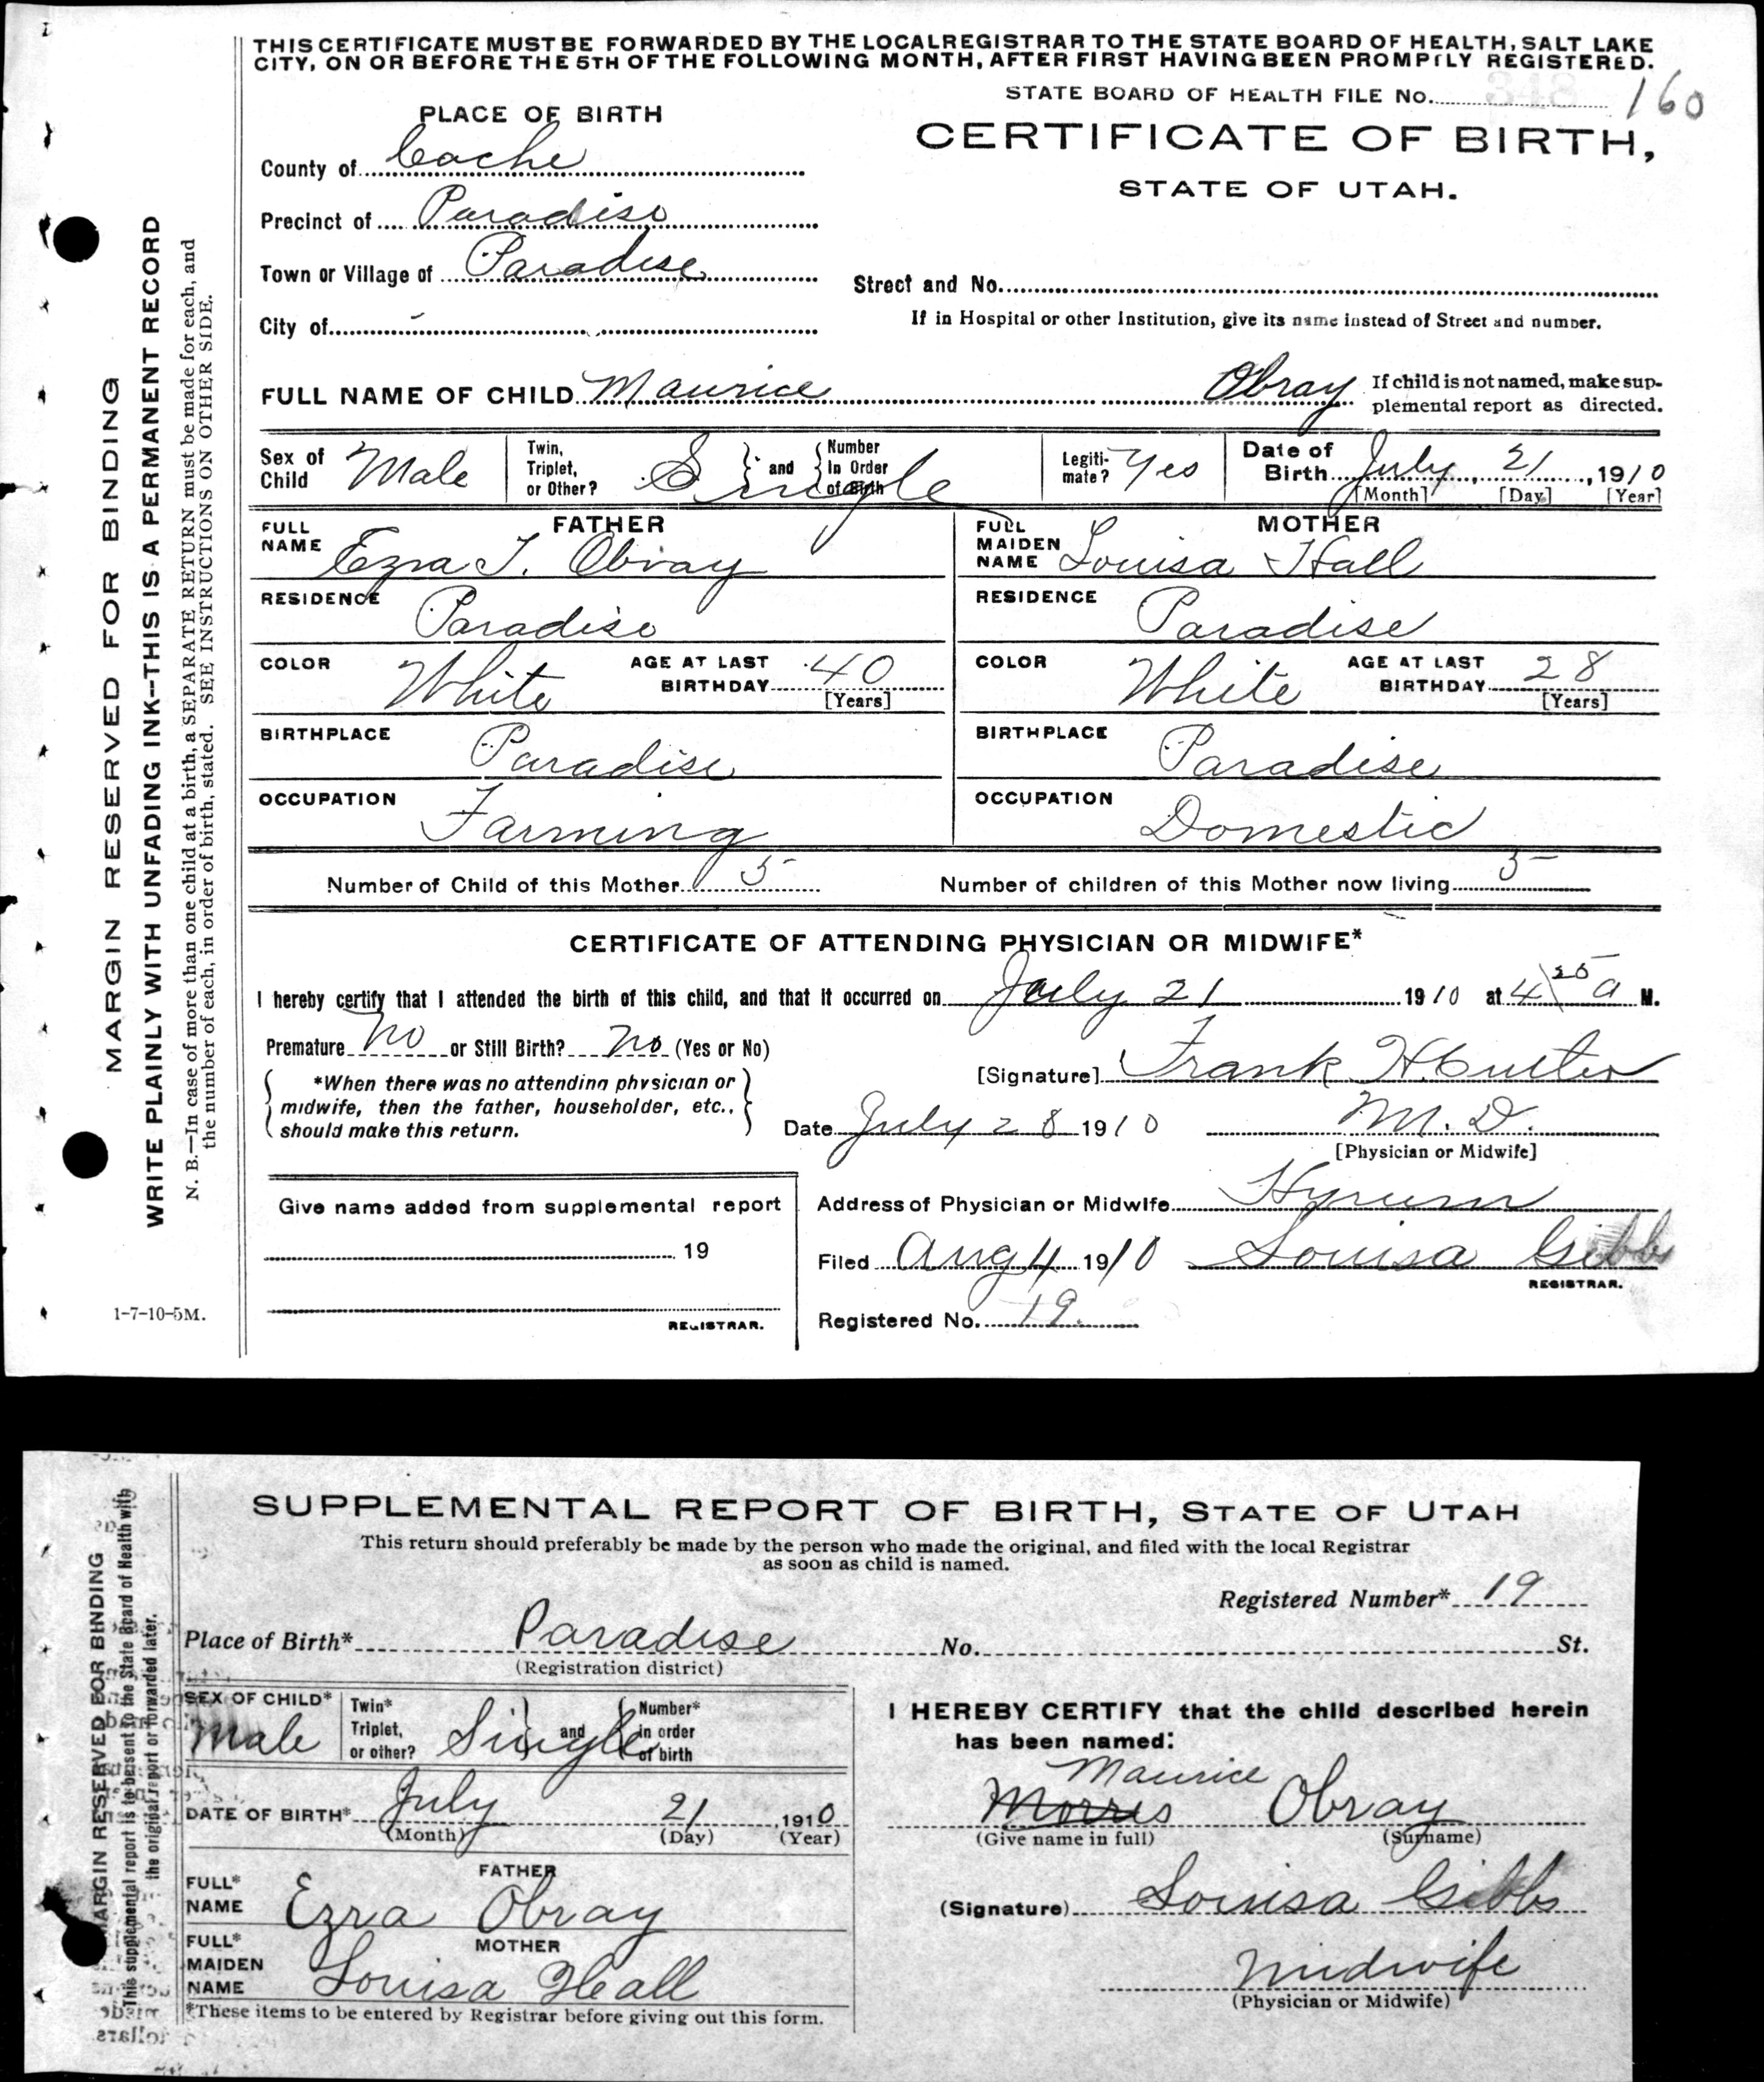 THIS CERTIFICATE MUST BE FORWARDED BY THE LOCAL REGISTRAR TO THE STATE BOARD OF HEALTH, SALT LAKE
CITY, ON OR BEFORE THE 5TH OF THE FOLLOWING MONTH, AFTER FIRST HAVING BEEN PROMPTLY REGISTERED.
STATE BOARD OF HEALTH FILE No. 160
PLACE OF BIRTH
CERTIFICATE OF BIRTH,
STATE OF UTAH.
County of Cache
Precinct of Paradise
Town or Village of Paradise
Street and No.
City of -
If in Hospital or other Institution, give its name instead of Street and number.
FULL NAME OF CHILD Maurice Obray
If child is not named, make sup-
plemental report as directed.
Sex of Child Male
Twin, Triplet, or Other? Single and Number In Order of Birth
Legiti-mate? Yes
Date of Birth July 21, 1910
[Month] [Day] [Year]
FATHER
FULL NAME Ezra T. Obray
RESIDENCE Paradise
COLOR White AGE AT LAST BIRTHDAY 40
[Years]
BIRTHPLACE Paradise
OCCUPATION Farming
MOTHER
FULL MAIDEN NAME Louisa Hall
RESIDENCE Paradise
COLOR White AGE AT LAST BIRTHDAY 28
[Years]
BIRTHPLACE Paradise
OCCUPATION Domestic
Number of Child of this Mother 5 Number of children of this Mother now living 5
CERTIFICATE OF ATTENDING PHYSICIAN OR MIDWIFE*
I hereby certify that I attended the birth of this child, and that it occurred on July 21 1910 at 4 a M.
Premature no or Still Birth? no (Yes or No)
*When there was no attending physician or
midwife, then the father, householder, etc.,
should make this return.
[Signature] Frank H. Cutler
Date July 28 1910 M. D.
[Physician or Midwife]
Give name added from supplemental report
19
REGISTRAR.
Address of Physician or Midwife Hyrum
Filed Aug 4 1910 Louisa Gibbs
REGISTRAR.
Registered No. 19.
MARGIN RESERVED FOR BINDING
WRITE PLAINLY WITH UNFADING INK--THIS IS A PERMANENT RECORD
N. B.—In case of more than one child at a birth, a SEPARATE RETURN must be made for each, and
the number of each, in order of birth, stated. SEE INSTRUCTIONS ON OTHER SIDE.
1-7-10-5M.
SUPPLEMENTAL REPORT OF BIRTH, STATE OF UTAH
This return should preferably be made by the person who made the original, and filed with the local Registrar
as soon as child is named.
Registered Number* 19
Place of Birth* Paradise No. St.
(Registration district)
SEX OF CHILD* Male
Twin* Triplet, or other? Single and Number* in order of birth
DATE OF BIRTH* July 21, 1910
(Month) (Day) (Year)
FATHER
FULL* NAME Ezra Obray
MOTHER
FULL* MAIDEN NAME Louisa Hall
*These items to be entered by Registrar before giving out this form.
I HEREBY CERTIFY that the child described herein
has been named:
Maurice
Morris Obray
(Give name in full) (Surname)
(Signature) Louisa Gibbs
Midwife
(Physician or Midwife)
MARGIN RESERVED FOR BINDING
This supplemental report is to be sent to the State Board of Health with
the original report or forwarded later.